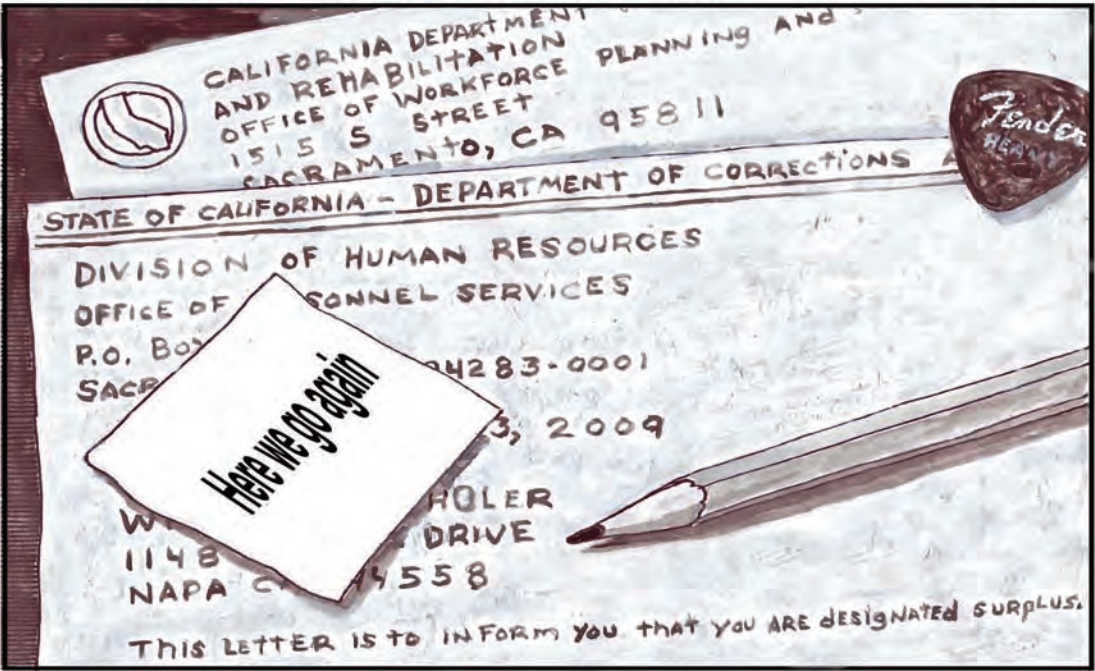 CALIFORNIA DEPARTMENT
AND REHABILITATION
OFFICE OF WORKFORCE PLANNING AND
1515 S STREET
SACRAMENTO, CA 95811
Fender
HEAVY
STATE OF CALIFORNIA - DEPARTMENT OF CORRECTIONS
DIVISION OF HUMAN RESOURCES
OFFICE OF SONNEL SERVICES
P.O. Bo
SACR 94283-0001
3, 2009
Here we go again
HOLER
1148 DRIVE
NAPA C 94558
THIS LETTER IS TO INFORM YOU THAT YOU ARE DESIGNATED SURPLUS.